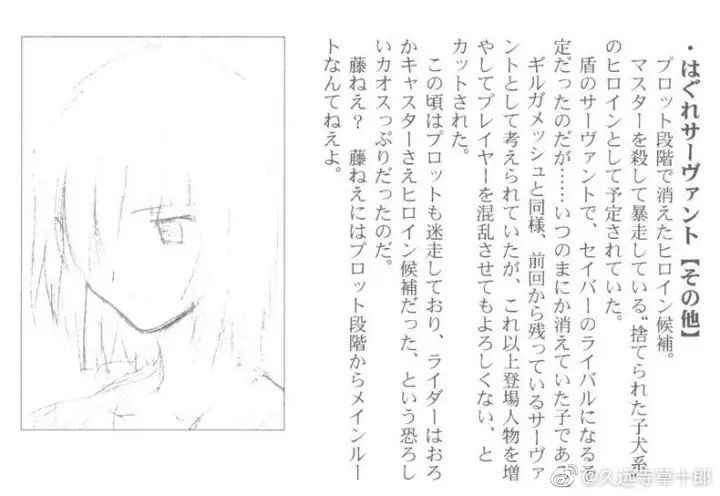 ・はぐれサーヴァント【その他】
プロット段階で消えたヒロイン候補。
マスターを殺して暴走している“捨てられた子犬系”
のヒロインとして予定されていた。
盾のサーヴァントで、セイバーのライバルになる予
定だったのだが……いつのまにか消えていた子である。
ギルガメッシュと同様、前回から残っているサーヴァ
ントとして考えられていたが、これ以上登場人物を増
やしてプレイヤーを混乱させてもよろしくない、と
カットされた。
この頃はプロットも迷走しており、ライダーはおろ
かキャスターさえヒロイン候補だった、という恐ろし
いカオスっぷりだったのだ。
藤ねえ？　藤ねえにはプロット段階からメインルー
トなんてねえよ。
@久远寺草十郎